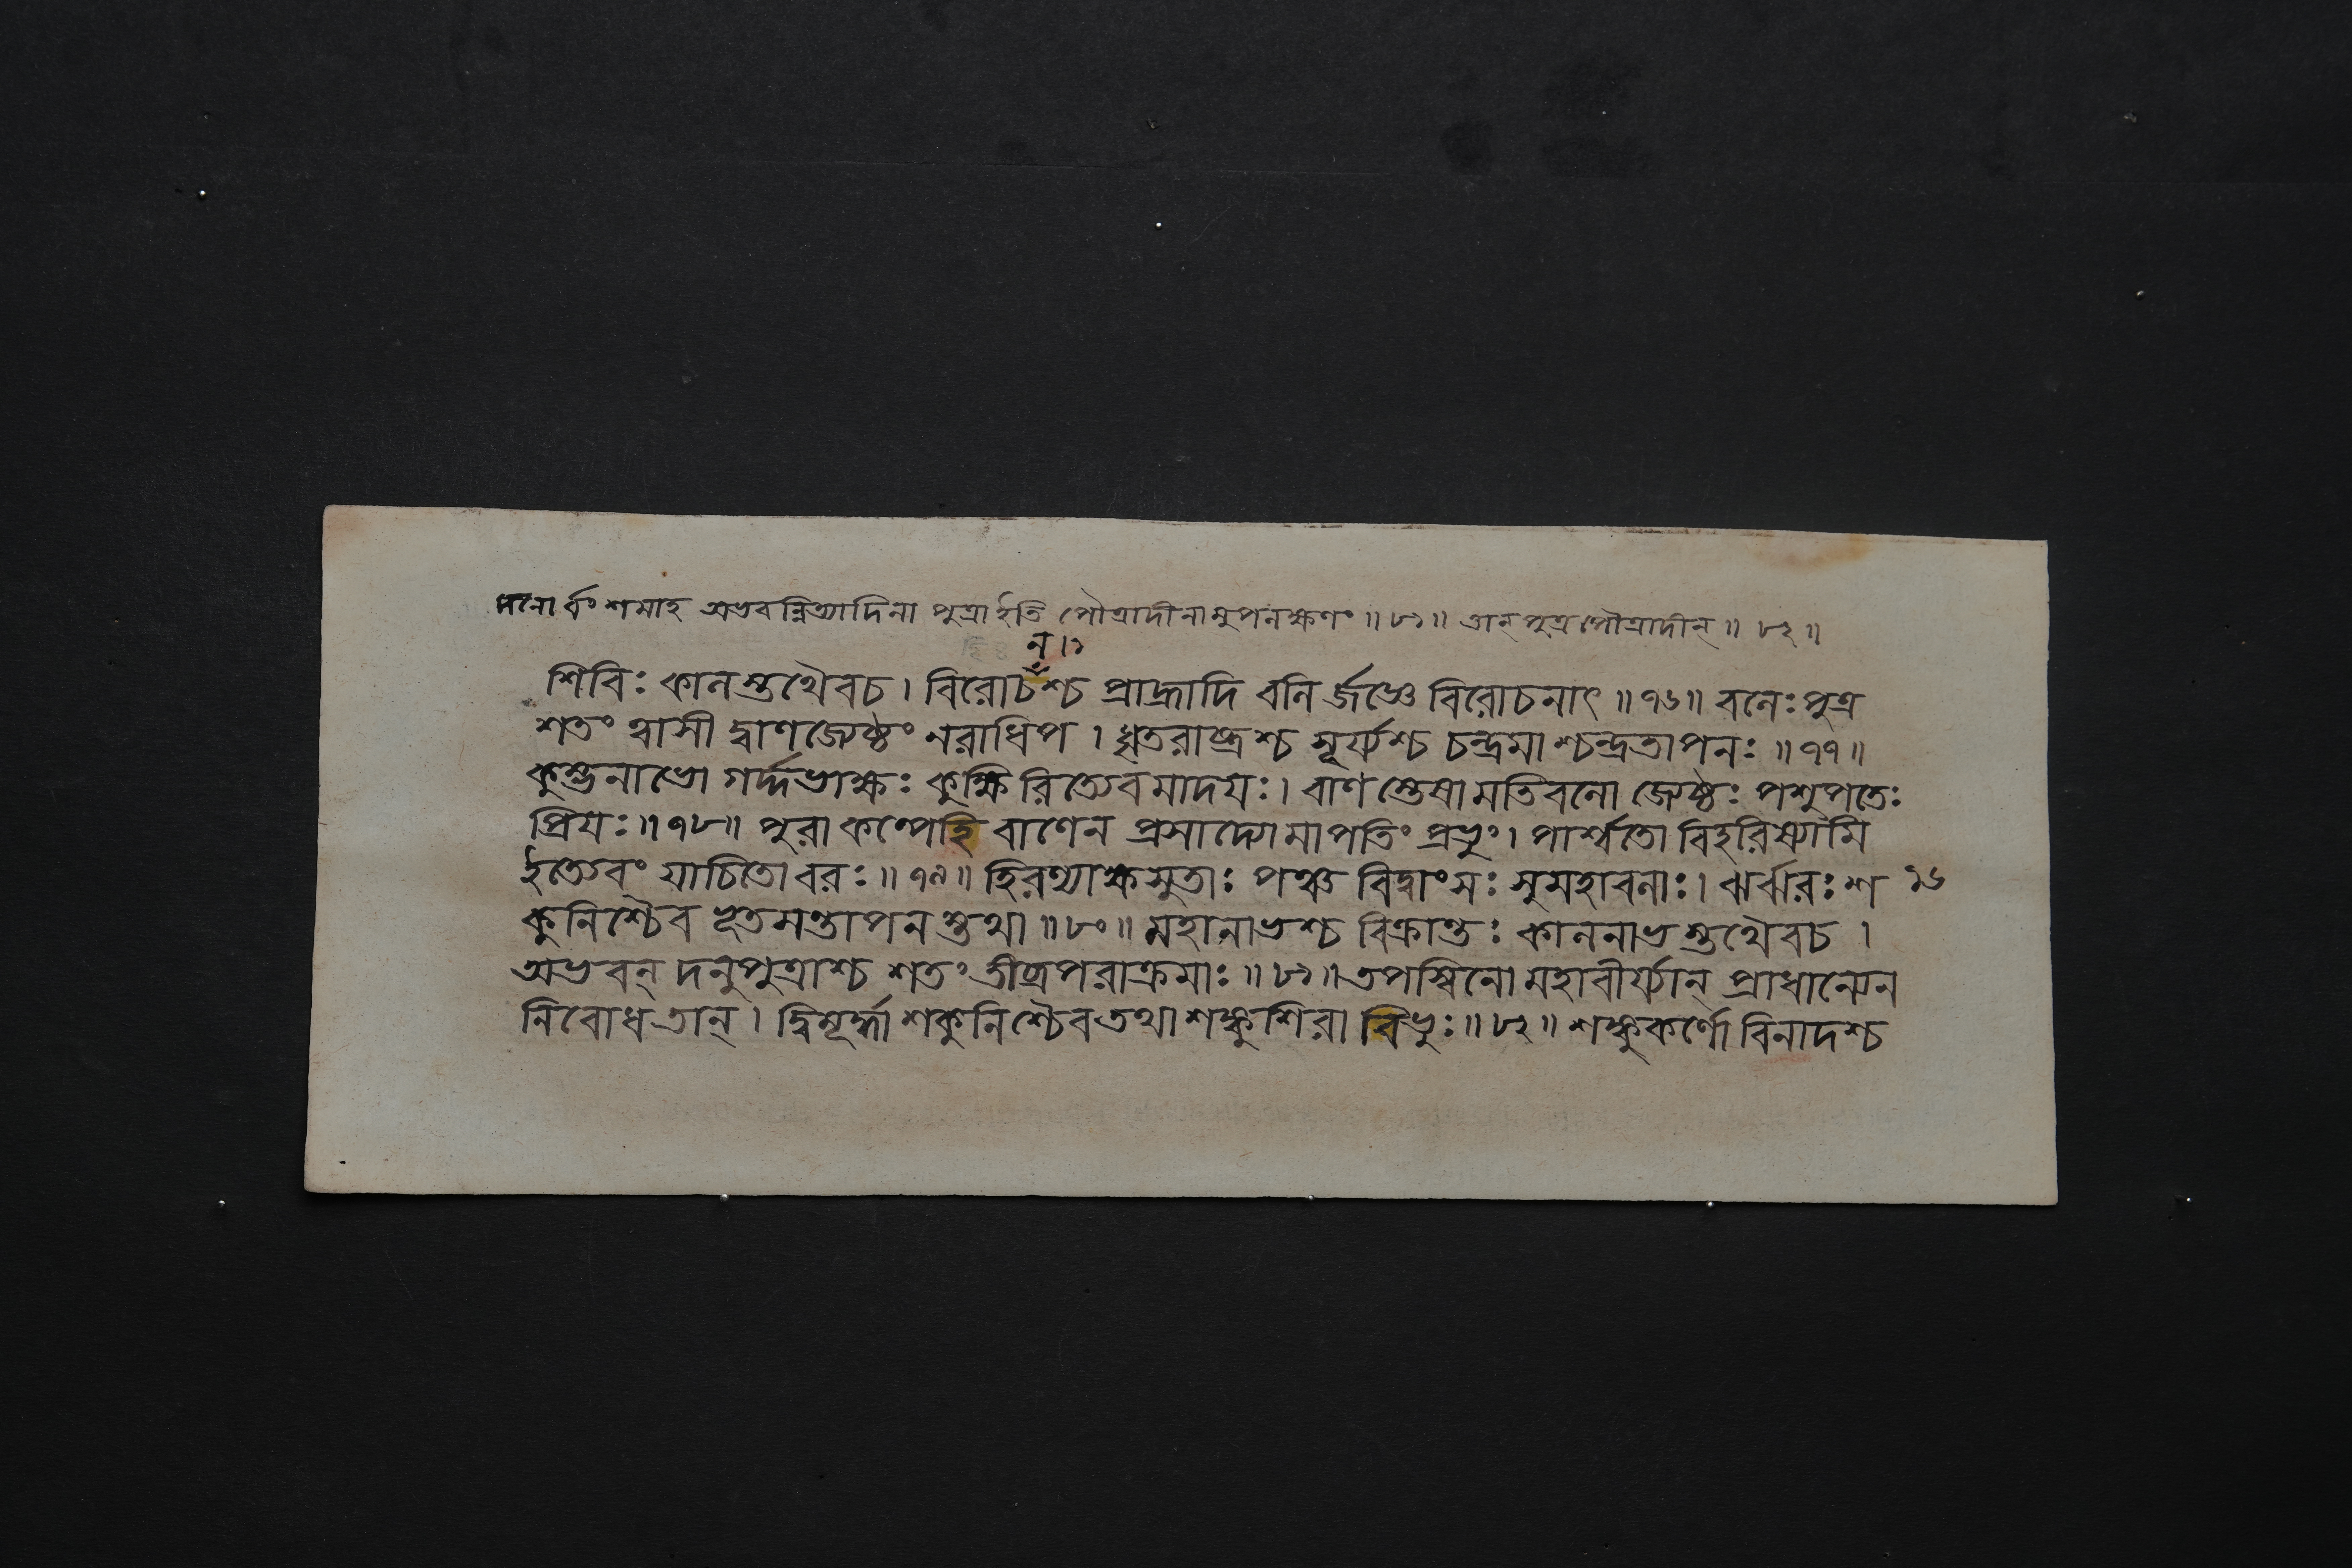 দনোর্বংশমাহ অভবন্নিত্যাদিনা পুত্রাইতি পৌত্রাদীনামুপলক্ষণং ॥৮১॥ তান্ পুত্রপৌত্রাদীন্ ॥৮২॥
ন।১
শিবিঃ কালস্তথৈবচ। বিরোচঁশ্চ প্রাহ্লাদি বলি র্জজ্ঞে বিরোচনাৎ ॥৭৬॥ বলেঃপুত্র
শতং ত্বাসী দ্বাণজ্যেষ্ঠং নরাধিপ। ধৃতরাষ্ট্রশ্চ সূর্য্যশ্চ চন্দ্রমাশ্চন্দ্রতাপনঃ ॥৭৭॥
কুম্ভনাভো গর্দ্দভাক্ষঃ কুক্ষি রিত্যেবমাদয়ঃ। বাণস্তেষামতিবলো জ্যেষ্ঠঃ পশুপতেঃ
প্রিয়ঃ ॥৭৮॥ পুরাকল্পেহি বাণেন প্রসাদ্যোমাপতিং প্রভুং। পার্শ্বতো বিহরিষ্যামি
ইত্যেবং যাচিতোবরঃ ॥৭৯॥ হিরণ্যাক্ষসুতাঃ পঞ্চ বিদ্বাংসঃ সুমহাবলাঃ। ঝর্ঝরঃ শ ১৬
কুনিশ্চৈব ভূতসন্তাপন স্তথা ॥৮০॥ মহানাভশ্চ বিক্রান্তঃ কালনাভ স্তথৈবচ।
অভবন্ দনুপুত্রাশ্চ শতং তীব্রপরাক্রমাঃ ॥৮১॥ তপস্বিনো মহাবীর্য্যান্ প্রাধান্যেন
নিবোধতান্। দ্বিমূর্দ্ধা শকুনিশ্চৈবতথা শঙ্কুশিরা বিভুঃ ॥৮২॥ শঙ্কুকর্ণো বিনাদশ্চ